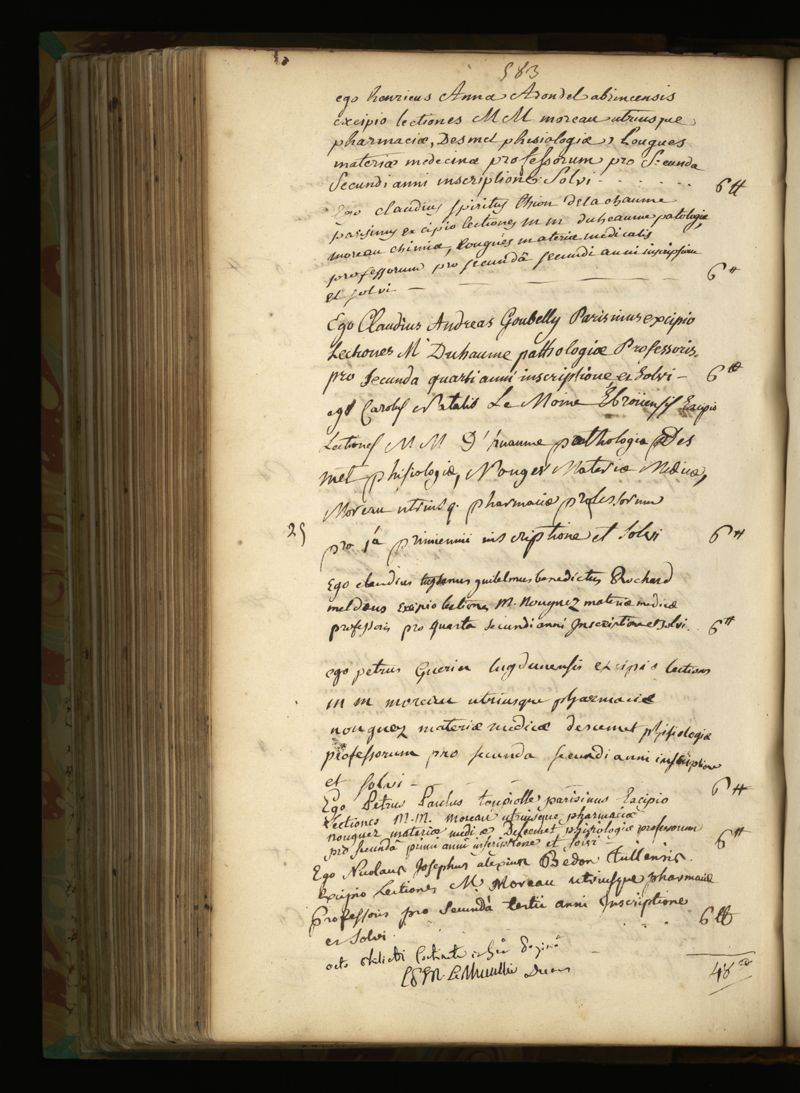 583
ego henricus Anna Arondel abrincensis
excipio lectiones M M moreau utriusque
pharmaciæ, Desmet phisiologiæ, Nougues
materiæ medecinæ professorum pro Secunda
Secundi anni inscriptione Solvi 6 ₶
Ego claudius spiritus delachaume
parisinus excipio lectiones m m duheaume patologiæ
moreau chimiæ, nouguès materiæ medicalis
professorum pro secundâ secundi anni inscriptione
et solvi 6 ₶
Ego Claudius Andreas Goubelly Parisinus excipio
Lectiones M Duhaume pathologiæ Professoris
pro Secunda quarti anni inscriptione et Solvi 6 ₶
ego Carolus Natalis Le Moine Ebroicensis Excipio
Lectiones M M D'huaume pathologia Des
met phisiologiæ, Nouger Materiæ Medicæ,
Moreau utriusq. pharmaciæ professorum
25
pro 1a primi anni inscriptione et Solvi 6 ₶
Ego claudius guilelmus benedictus Brochard
meldæus Excipio lectiones M. Nouguez materiæ medicæ
professoris pro quarta secundi anni Inscriptione et solvi. 6 ₶
ego petrus Guerin lugdunensis excipio lectiones
m m moreau utriusque pharmaciæ
nouguez materiæ medicæ descemet phisiologiæ
professorum pro secunda secundi anni inscriptione
et solvi 6 ₶
Ego Petrus Paulus toupiolle parisinus Excipio
Lectiones M. M. Moreau utriusque pharmaciæ
nouguez materiæ medicæ Descemet phisiologiæ professorum
pro secundâ primi anni inscriptione et solvi 6 ₶
Ego Nicolaus Josephus alexius Bedon tullensis.
excipio Lectiones M. Moreau utriusque pharmaciæ
Professoris pro Secundâ tertii anni Inscriptione
et Solvi. 6 ₶
octo
Le Thieullier Decan
48 ₶